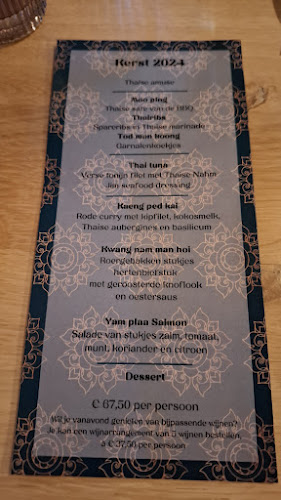 Kerst 2024
Thaise amuse
Moo ping
Thaise saté van de BBQ
Thairibs
Spareribs in Thaise marinade
Tod man koong
Garnalenkoekjes
Thai tuna
Verse tonijn filet met Thaise Nahm
Jim seafood dressing
Kaeng ped kai
Rode curry met kipfilet, kokosmelk,
Thaise aubergines en basilicum
Kwang nam man hoi
Roergebakken stukjes
hertenbiefstuk
met geroosterde knoflook
en oestersaus
Yam plaa Salmon
Salade van stukjes zalm, tomaat,
munt, koriander en citroen
Dessert
€ 67,50 per persoon
Wil je vanavond genieten van bijpassende wijnen?
Je kan een wijnarrangement van 5 wijnen bestellen,
à € 37,50 per persoon